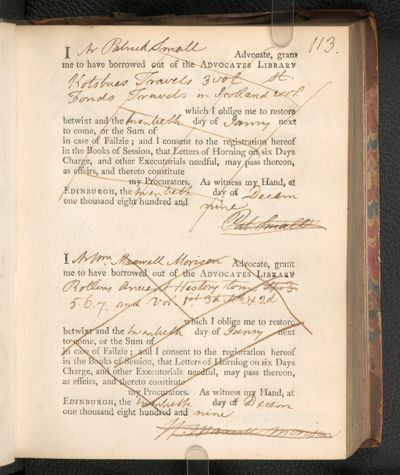 113.
I Mr Patrick Small Advocate, grant
me to have borrowed out of the ADVOCATES LIBRARY
Kotzbues Travels 3 vol
Travels in Scotland
which I oblige me to restore
betwixt and the twentieth day of Janry next
to come, or the Sum of
in case of Failzie; and I consent to the registration hereof
in the Books of Session, that Letters of Horning on six Days
Charge, and other Executorials needful, may pass thereon,
as effeirs, and thereto constitute
my Procurators. As witness my Hand, at
EDINBURGH, the twentieth day of Decem
one thousand eight hundred and nine
Pat. Small
I Mr Wm. Maxwell Morison Advocate, grant
me to have borrowed out of the ADVOCATES LIBRARY
Rollins Ancient History tom
5. 6. 7. and Vol 1st 3d 4th & 2d
which I oblige me to restore
betwixt and the twentieth day of Janry next
to come, or the Sum of
in case of Failzie; and I consent to the registration hereof
in the Books of Session, that Letters of Horning on six Days
Charge, and other Executorials needful, may pass thereon,
as effeirs, and thereto constitute
my Procurators. As witness my Hand, at
EDINBURGH, the twentieth day of Decem
one thousand eight hundred and nine
W. Maxwell Morison